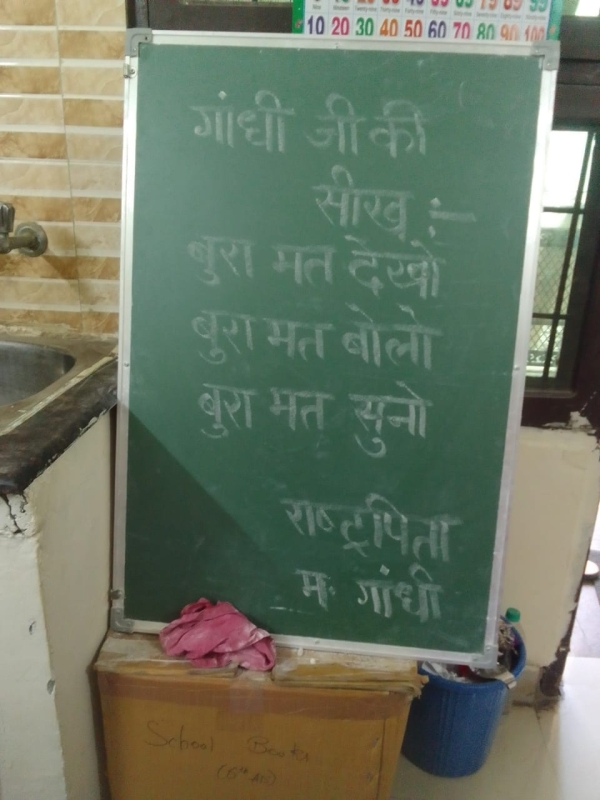 10 20 30 40 50 60 70 80 90 100
गांधी जी की
सीख :-
बुरा मत देखो
बुरा मत बोलो
बुरा मत सुनो
राष्ट्रपिता
म. गांधी
School Books